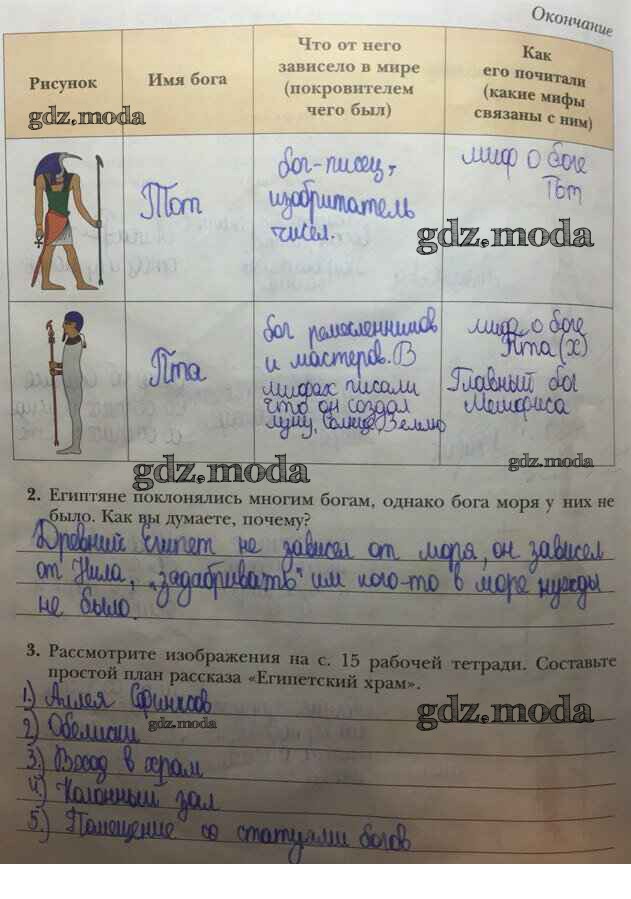 Окончание
Рисунок
Имя бога
Что от него
зависело в мире
(покровителем
чего был)
Как
его почитали
(какие мифы
связаны с ним)
gdz.moda
Тот
бог-писец,
изобритатель
чисел.
миф о боге
Тот
gdz.moda
Пта
бог ремесленников
и мастеров. В
мифах писали
что он создал
луну, Солнце, Землю
миф о боге
Пта (х)
Главный бог
Мемфиса
gdz.moda
gdz.moda
2. Египтяне поклонялись многим богам, однако бога моря у них не
было. Как вы думаете, почему?
Древний Египет не зависел от моря, он зависел
от Нила, "задабривать" им кого-то в море нужды
не было.
3. Рассмотрите изображения на с. 15 рабочей тетради. Составьте
простой план рассказа «Египетский храм».
1) Аллея Сфинксов
gdz.moda
gdz.moda
2) Обелиски
3.) Вход в храм
4) Колонный зал
5.) Помещение со статуями богов